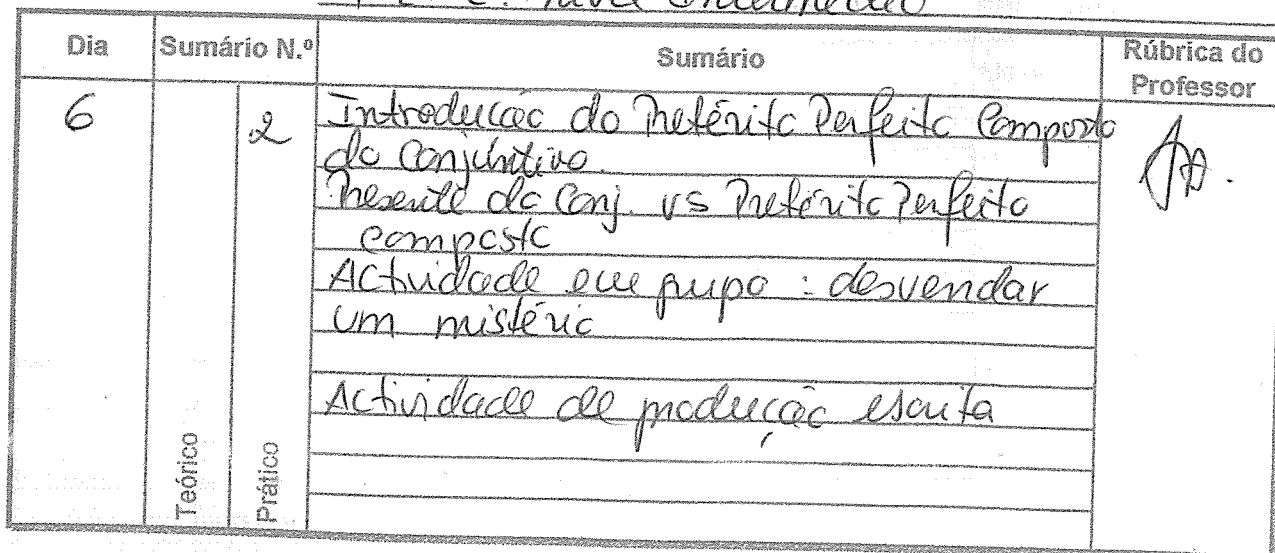 nível intermédio
Dia
Sumário N.º
Sumário
Rúbrica do
Professor
6
2
Introdução do Pretérito Perfeito Composto
do Conjuntivo.
Presente do Conj. vs Pretérito Perfeito
composto
Actividade em grupo : desvendar
um mistério
Actividade de produção escrita
Teórico
Prático